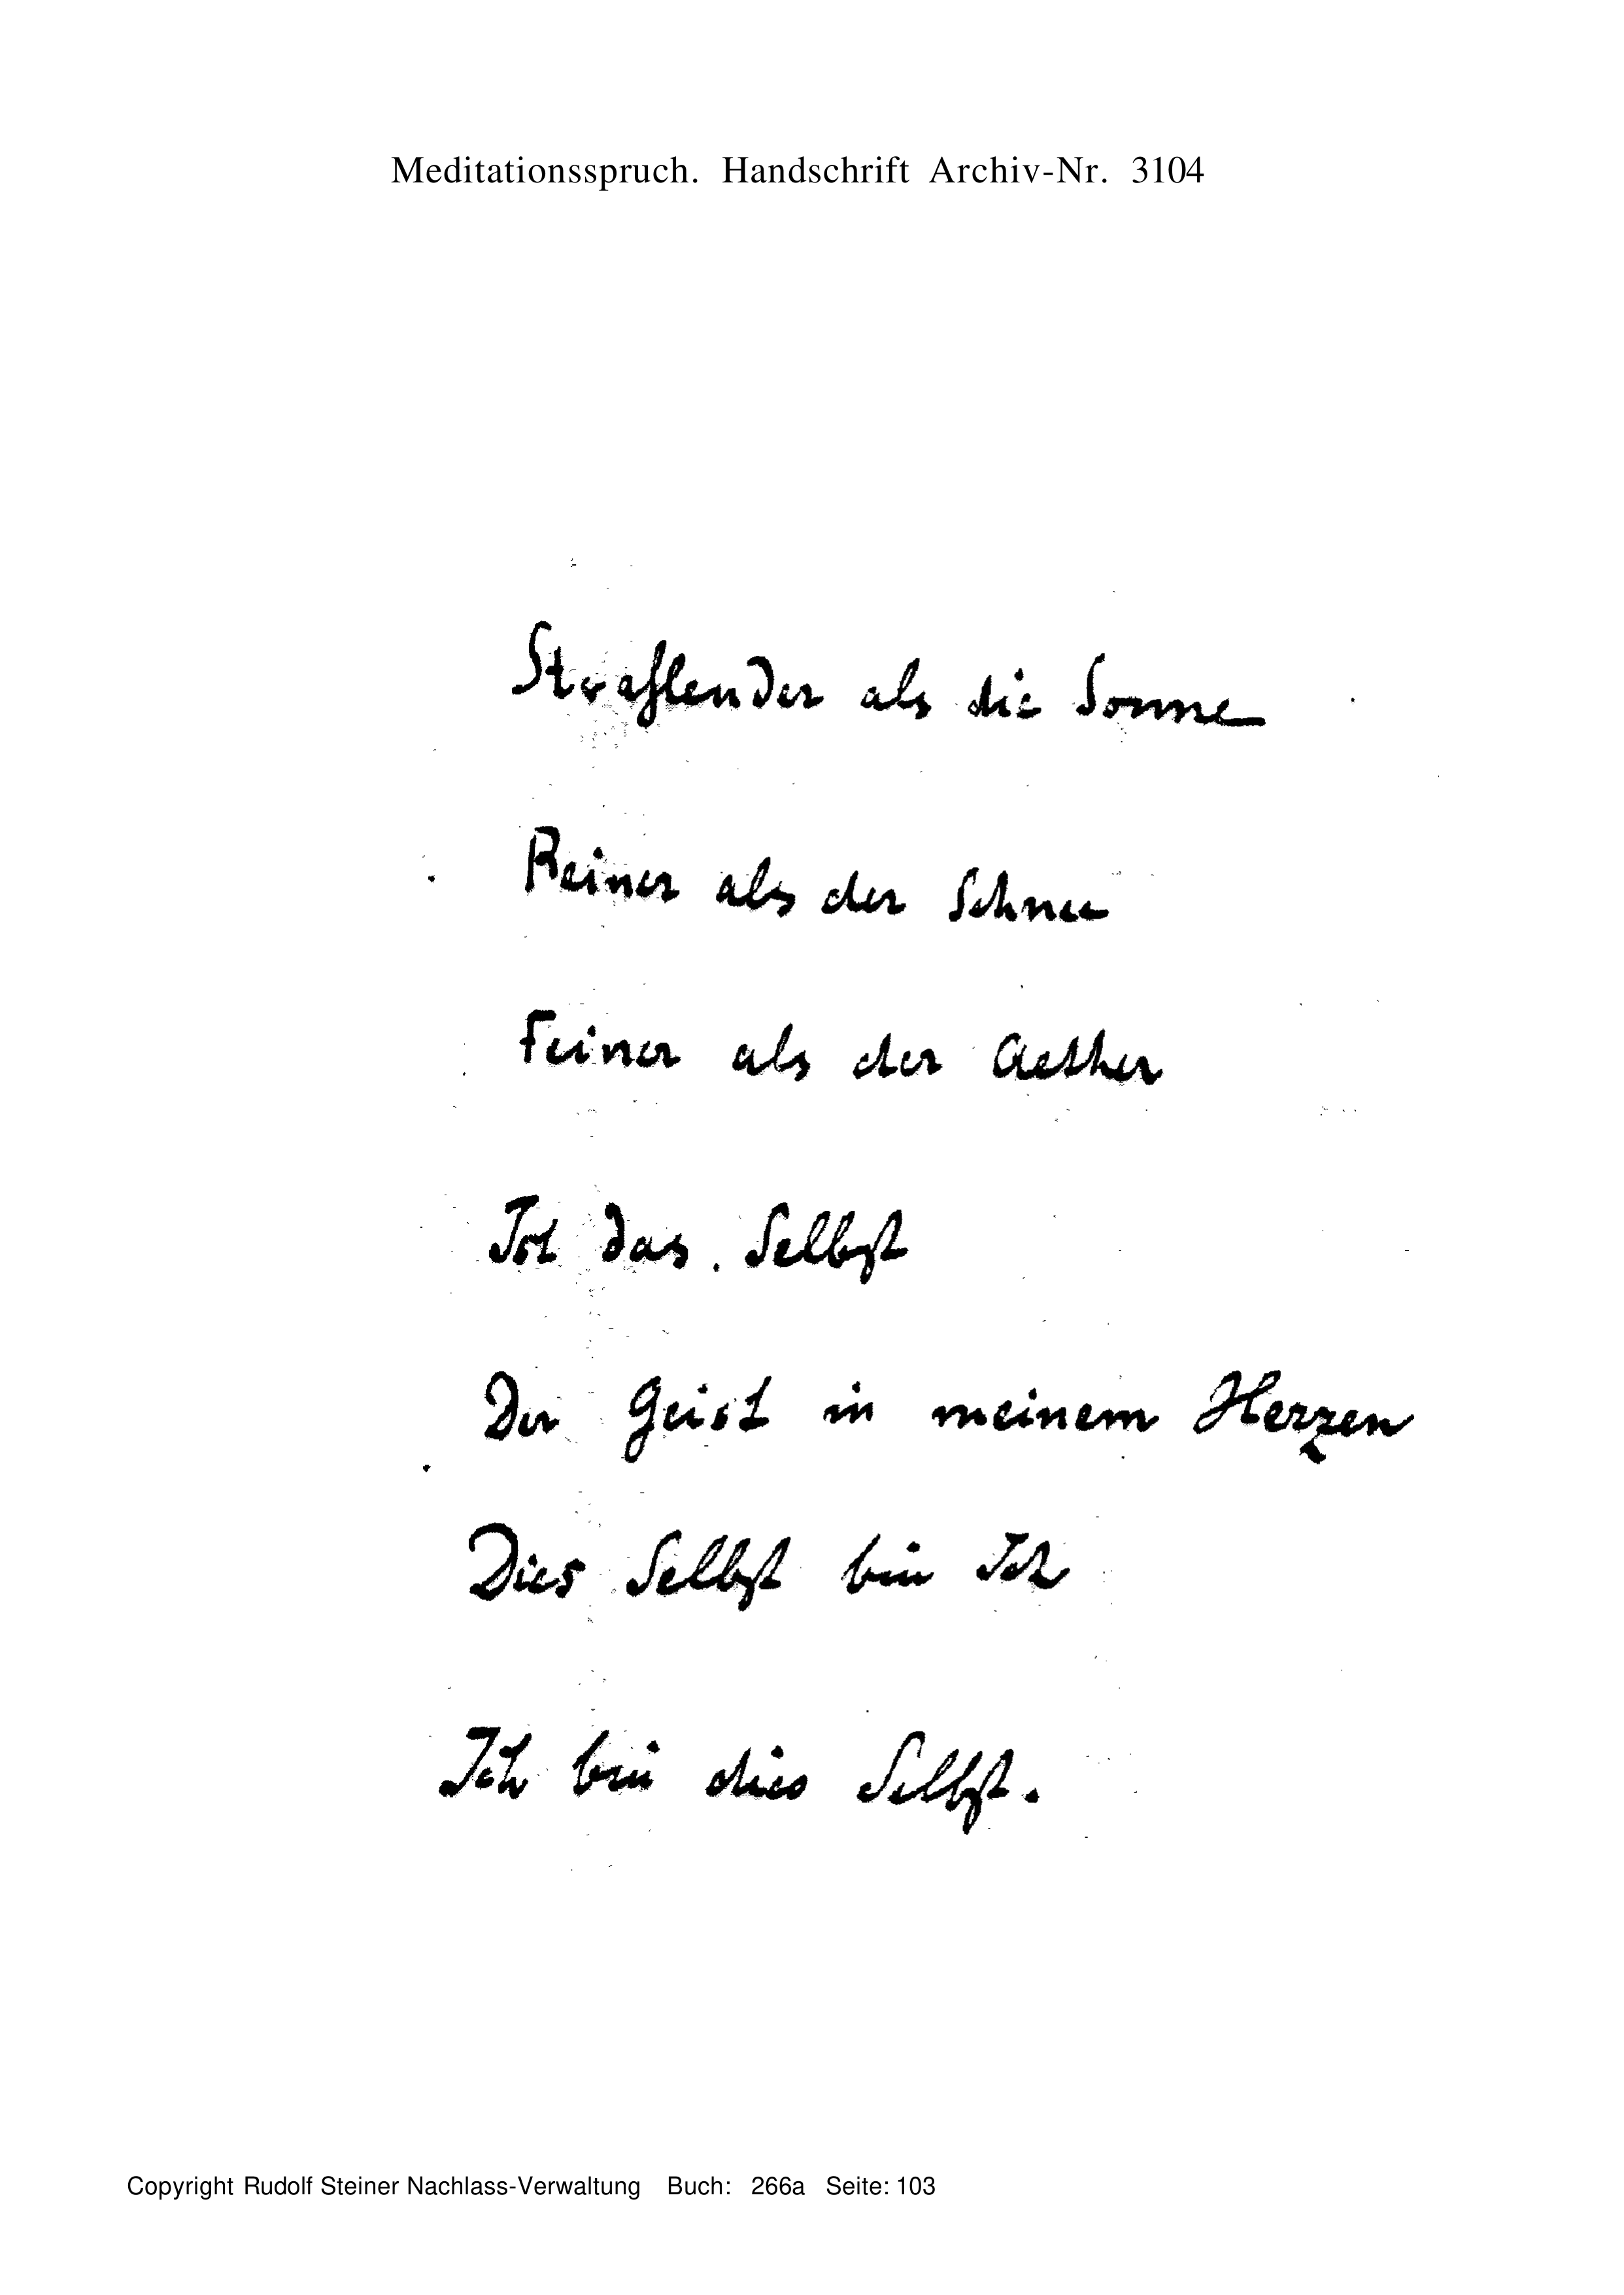 Meditationsspruch. Handschrift Archiv-Nr. 3104
Strahlender als die Sonne
Reiner als der Schnee
Feiner als der Aether
Ist das Selbst
Der Geist in meinem Herzen
Dies Selbst bin Ich
Ich bin dies Selbst.
Copyright Rudolf Steiner Nachlass-Verwaltung Buch: 266a Seite: 103